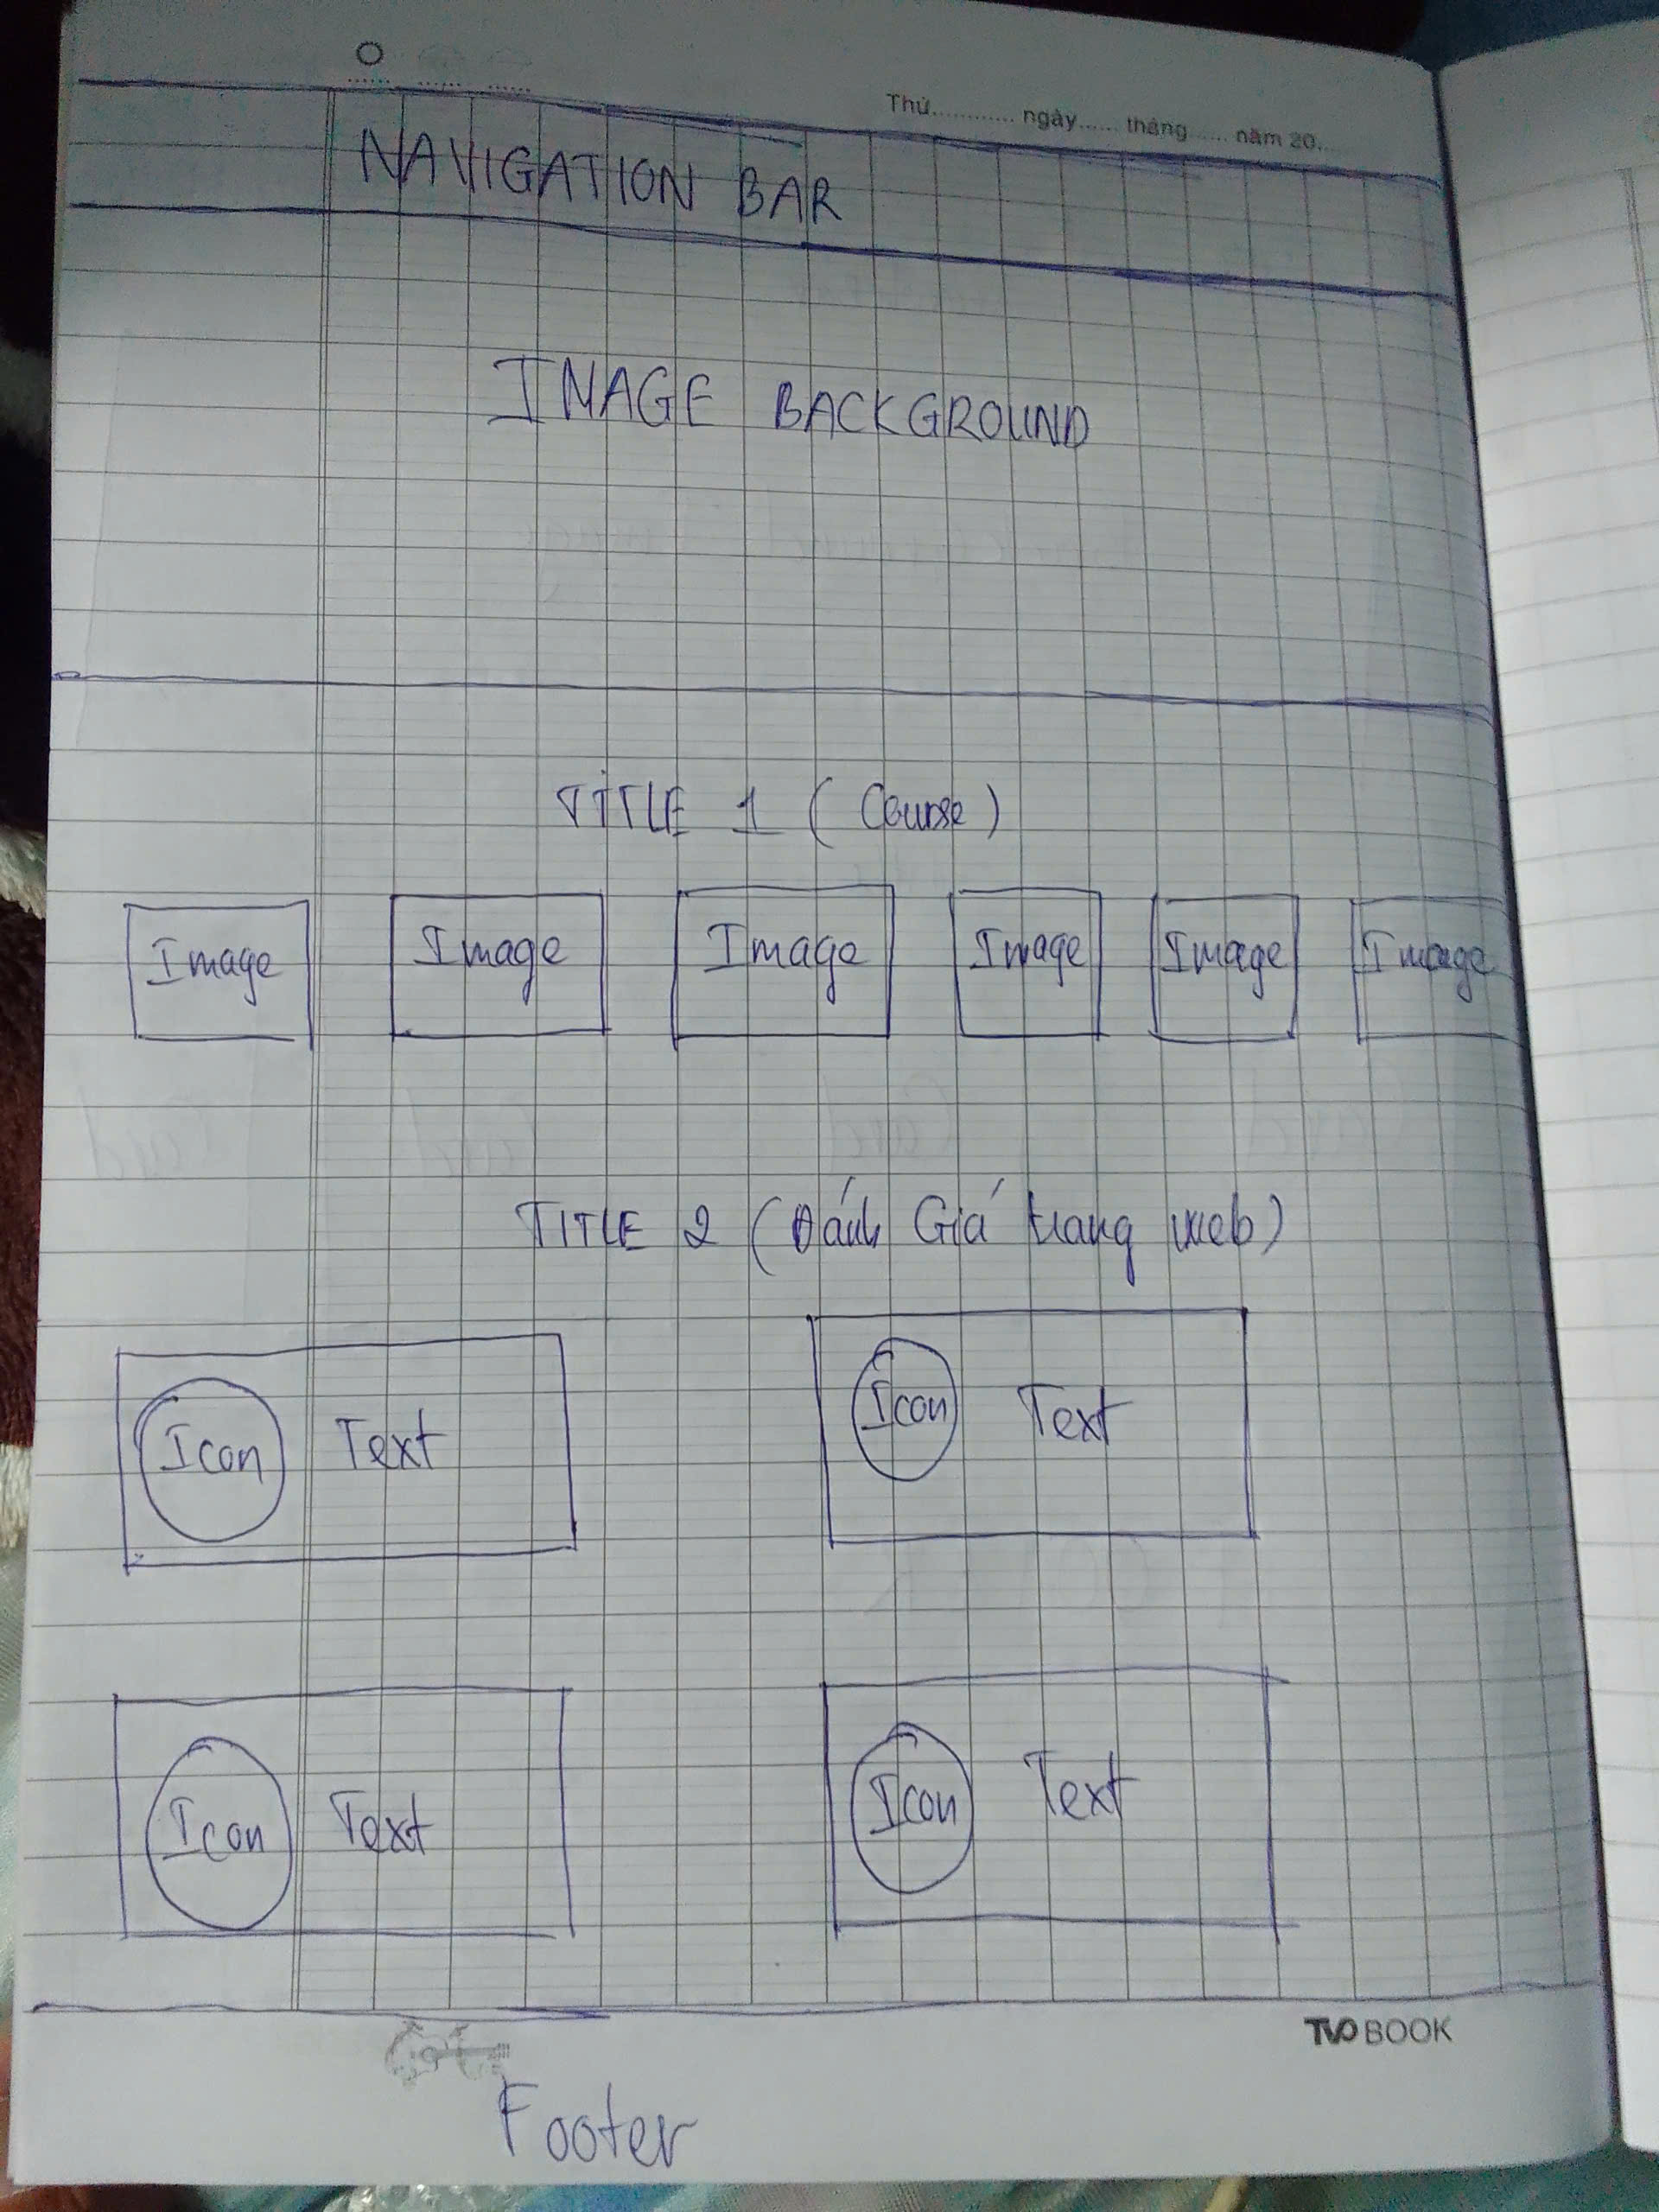 Thứ............ ngày...... tháng...... năm 20.....
NAVIGATION BAR
IMAGE BACKGROUND
TITLE 1 (Course)
Image Image Image Image Image Image
TITLE 2 (Đánh Giá trang web)
Icon Text Icon Text
Icon Text Icon Text
TVO BOOK
Footer